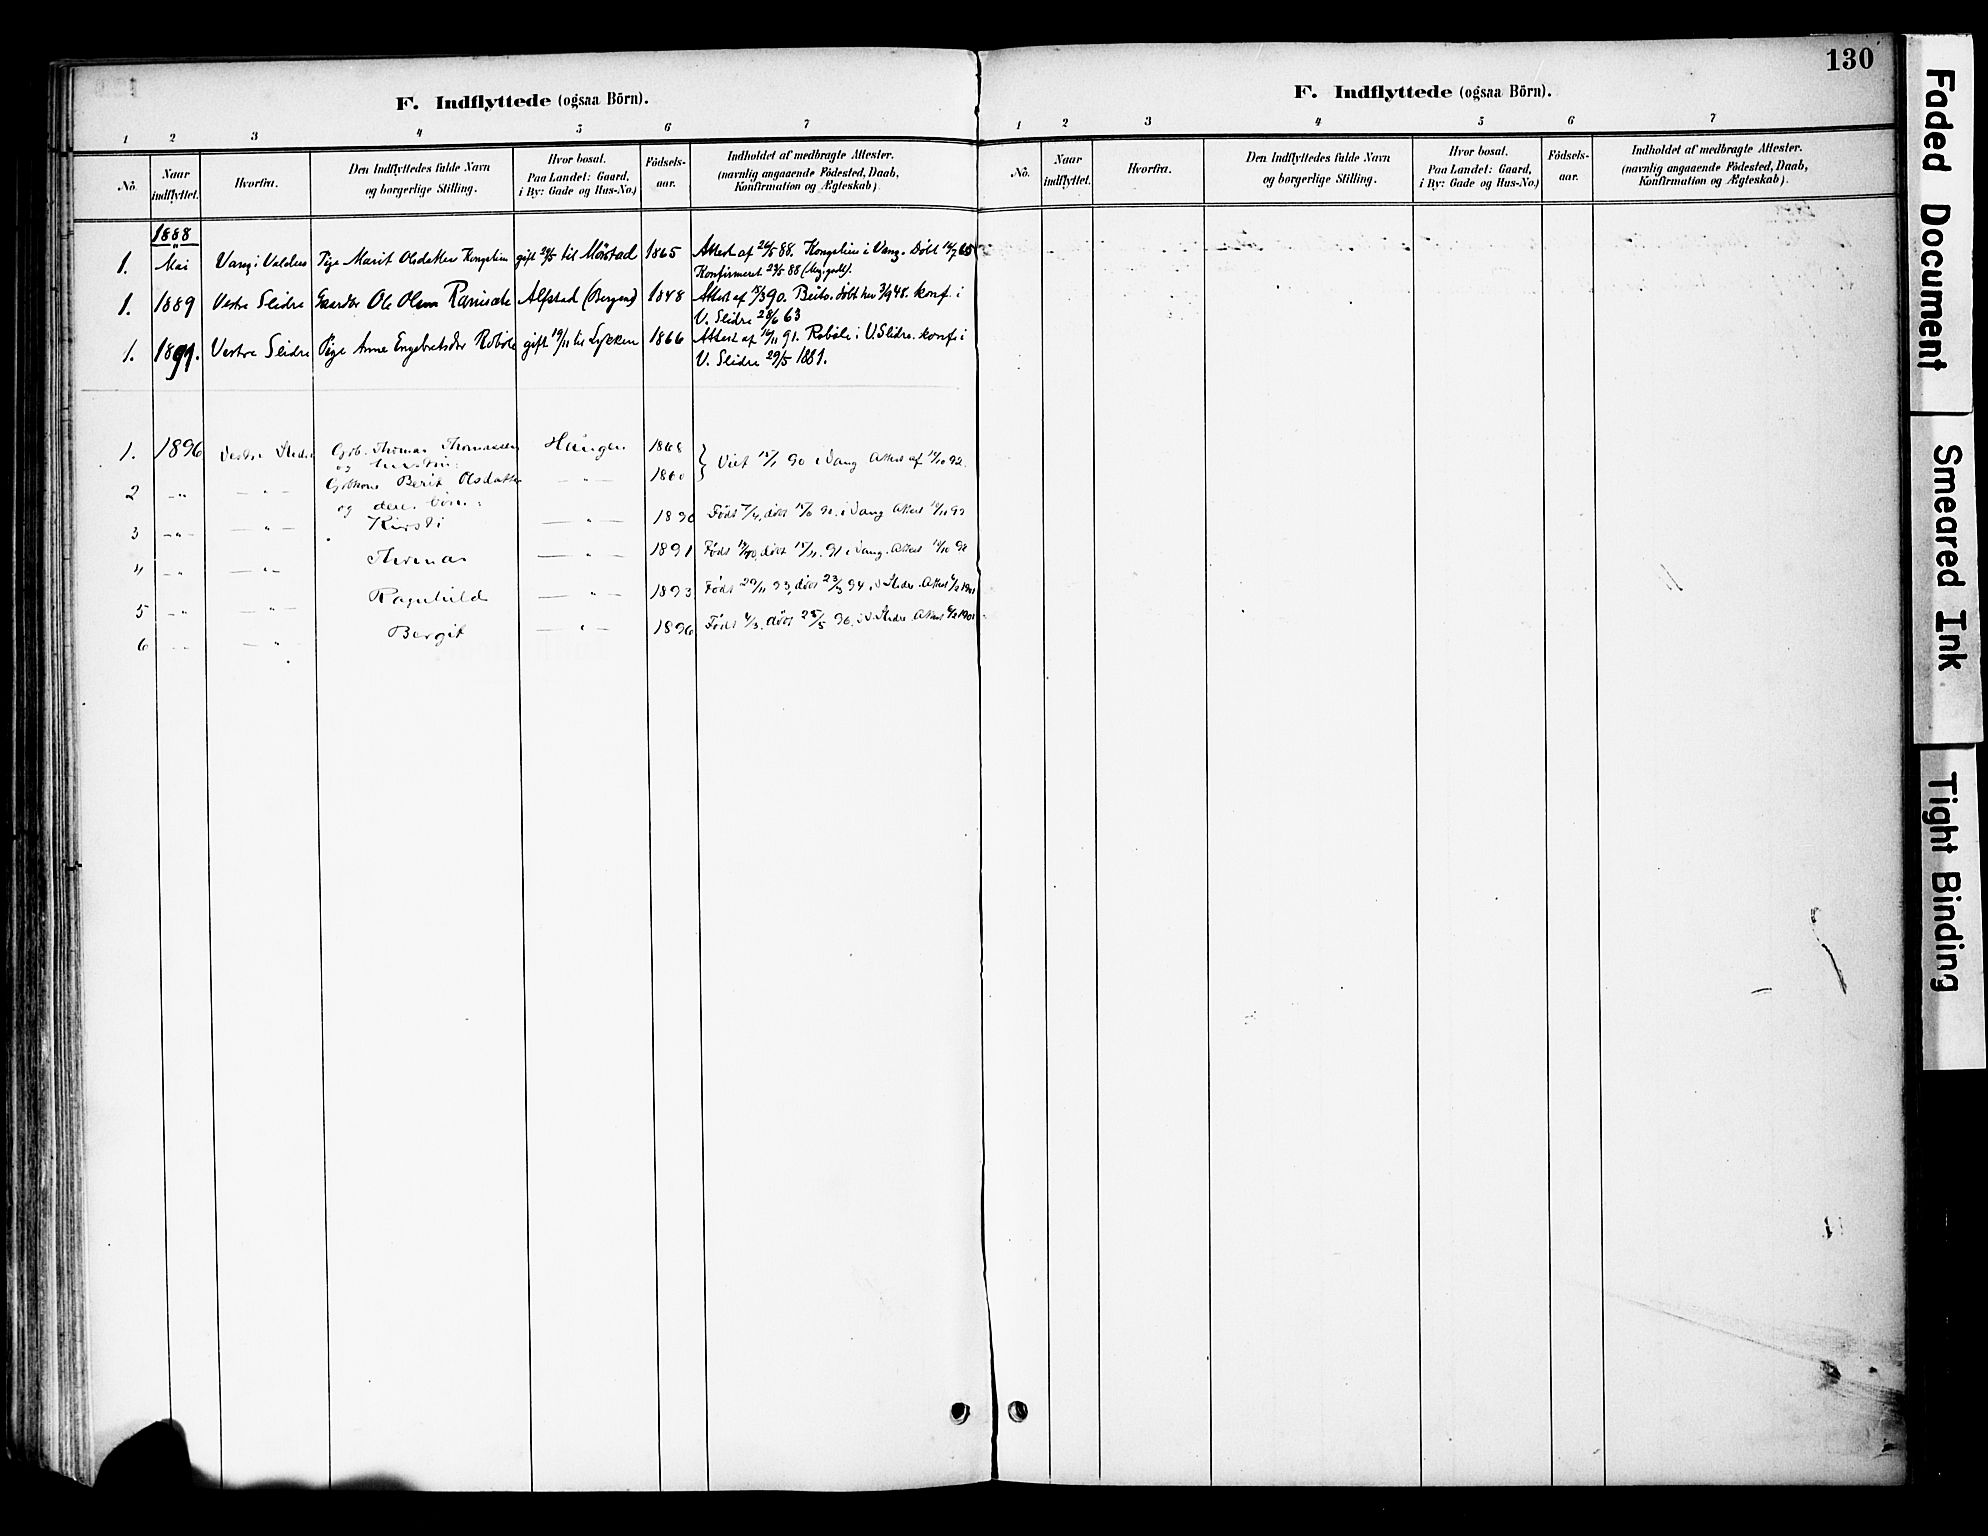 130
F. Indflyttede (ogsaa Börn).
1 2 3 4 5 6 7
No. Naar indflyttet. Hvorfra. Den Indflyttedes fulde Navn og borgerlige Stilling. Hvor bosat. Paa Landet: Gaard, i By: Gade og Hus-No.) Födsels-aar. Indholdet af medbragte Attester. (navnlig angaaende Födested, Daab, Konfirmation og Ægteskab).
1888
1. Mai Vang i Valders Pige Marit Olsdatter gift 29/5 til Mörstad 1865 Attest af 26/5 88. i Vang. Döbt 65
Konfirmeret
1. 1889 Vestre Slidre Ole Olsen Alfstad (Bergene) 1848 Attest af 90. Beito. döbt her 3/9 48. konf. i
V. Slidre 28/6 63
1. 1891. Vestre Slidre Pige Anne Engebretsdr Robole gift 19/11 til Lykken 1866 Attest af 91. Robole i V. Slidre. konf. i
V. Slidre 29/5 1881.
1. 1896 Vestre Slidre Grb. Thomas Thomassen Haugen 1868
og
Viet 90 i Vang Attest af
2 " — " — Berit Olsdatter — " — 1860
og
3 — " — — " — Kirsti — " — 1890 Födt döbt i Vang Attest
4 — " — — " — Thomas — " — 1891 Födt döbt 91 i Vang. Attest
5 — " — — " — Ragnhild — " — 1893 Födt 29/11 93, döbt 23/3 94 i V Slidre. Attest 1901
6 — " — — " — Bergit — " — 1896 Födt 4/3, döbt 25/5 96. i V Slidre. Attest 1901
F. Indflyttede (ogsaa Börn).
1 2 3 4 5 6 7
No. Naar indflyttet. Hvorfra. Den Indflyttedes fulde Navn og borgerlige Stilling. Hvor bosat. Paa Landet: Gaard, i By: Gade og Hus-No.) Födsels-aar. Indholdet af medbragte Attester. (navnlig angaaende Födested, Daab, Konfirmation og Ægteskab).
Faded Document
Smeared Ink
Tight Binding